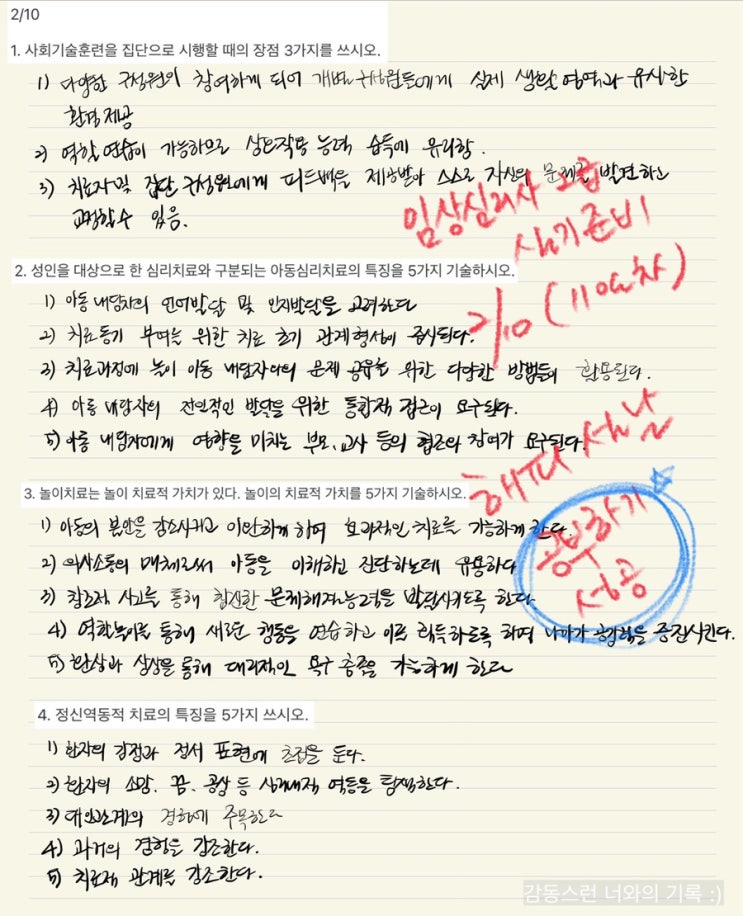 2/10
1. 사회기술훈련을 집단으로 시행할 때의 장점 3가지를 쓰시오.
1) 다양한 구성원이 참여하게 되어 개별 구성원들에게 실제 생활 영역과 유사한
환경제공
2) 역할 연습이 가능하므로 상호작용 능력 습득에 유리함.
3) 치료자 및 집단 구성원에게 피드백을 제공받아 스스로 자신의 문제를 발견하고
교정할 수 있음.
임상심리사 2급
실기준비
2/10 (110일차)
2. 성인을 대상으로 한 심리치료와 구분되는 아동심리치료의 특징을 5가지 기술하시오.
1) 아동 내담자의 언어발달 및 인지발달을 고려한다
2) 치료동기 부여를 위한 치료 초기 관계형성이 중시된다.
3) 치료과정에 놀이 아동 내담자와의 문제 공유를 위한 다양한 방법들이 활용된다.
4) 아동 내담자의 전인적인 발달을 위한 통합적 접근이 요구된다.
5) 아동 내담자에게 영향을 미치는 부모, 교사 등의 협조와 참여가 요구된다.
해피 설날
3. 놀이치료는 놀이 치료적 가치가 있다. 놀이의 치료적 가치를 5가지 기술하시오.
1) 아동의 불안을 감소시키고 이완하게 하여 효과적인 치료를 가능하게 한다.
2) 의사소통의 매체로써 아동을 이해하고 진단하는데 유용하다
3) 창조적 사고를 통해 참신한 문제해결능력을 발달시키도록 한다
4) 역할놀이를 통해 새로운 행동을 연습하고 이를 획득하도록 하며 나아가 공감력을 증진시킨다.
5) 환상과 상상을 통해 대리적인 욕구 충족을 가능하게 한다
공부하기
성공
4. 정신역동적 치료의 특징을 5가지 쓰시오.
1) 환자의 감정과 정서 표현에 초점을 둔다.
2) 환자의 소망, 꿈, 공상 등 심리내적 역동을 탐색한다.
3) 대인관계의 경험에 주목한다
4) 과거의 경험을 강조한다.
5) 치료적 관계를 강조한다.
감동스런 너와의 기록 :)